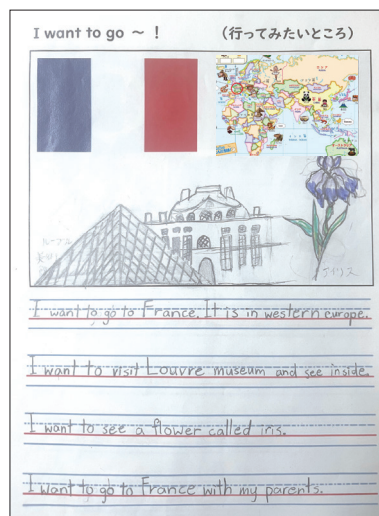 I want to go ～ ! （行ってみたいところ）
ルーブル
アイリス
I want to go to France. It is in western europe.
I want to visit Louvre museum and see inside.
I want to see a flower called iris.
I want to go to France with my parents.